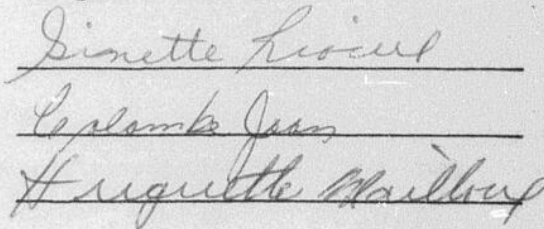 Ginette
Colombe Jean
Huguette Mailloux